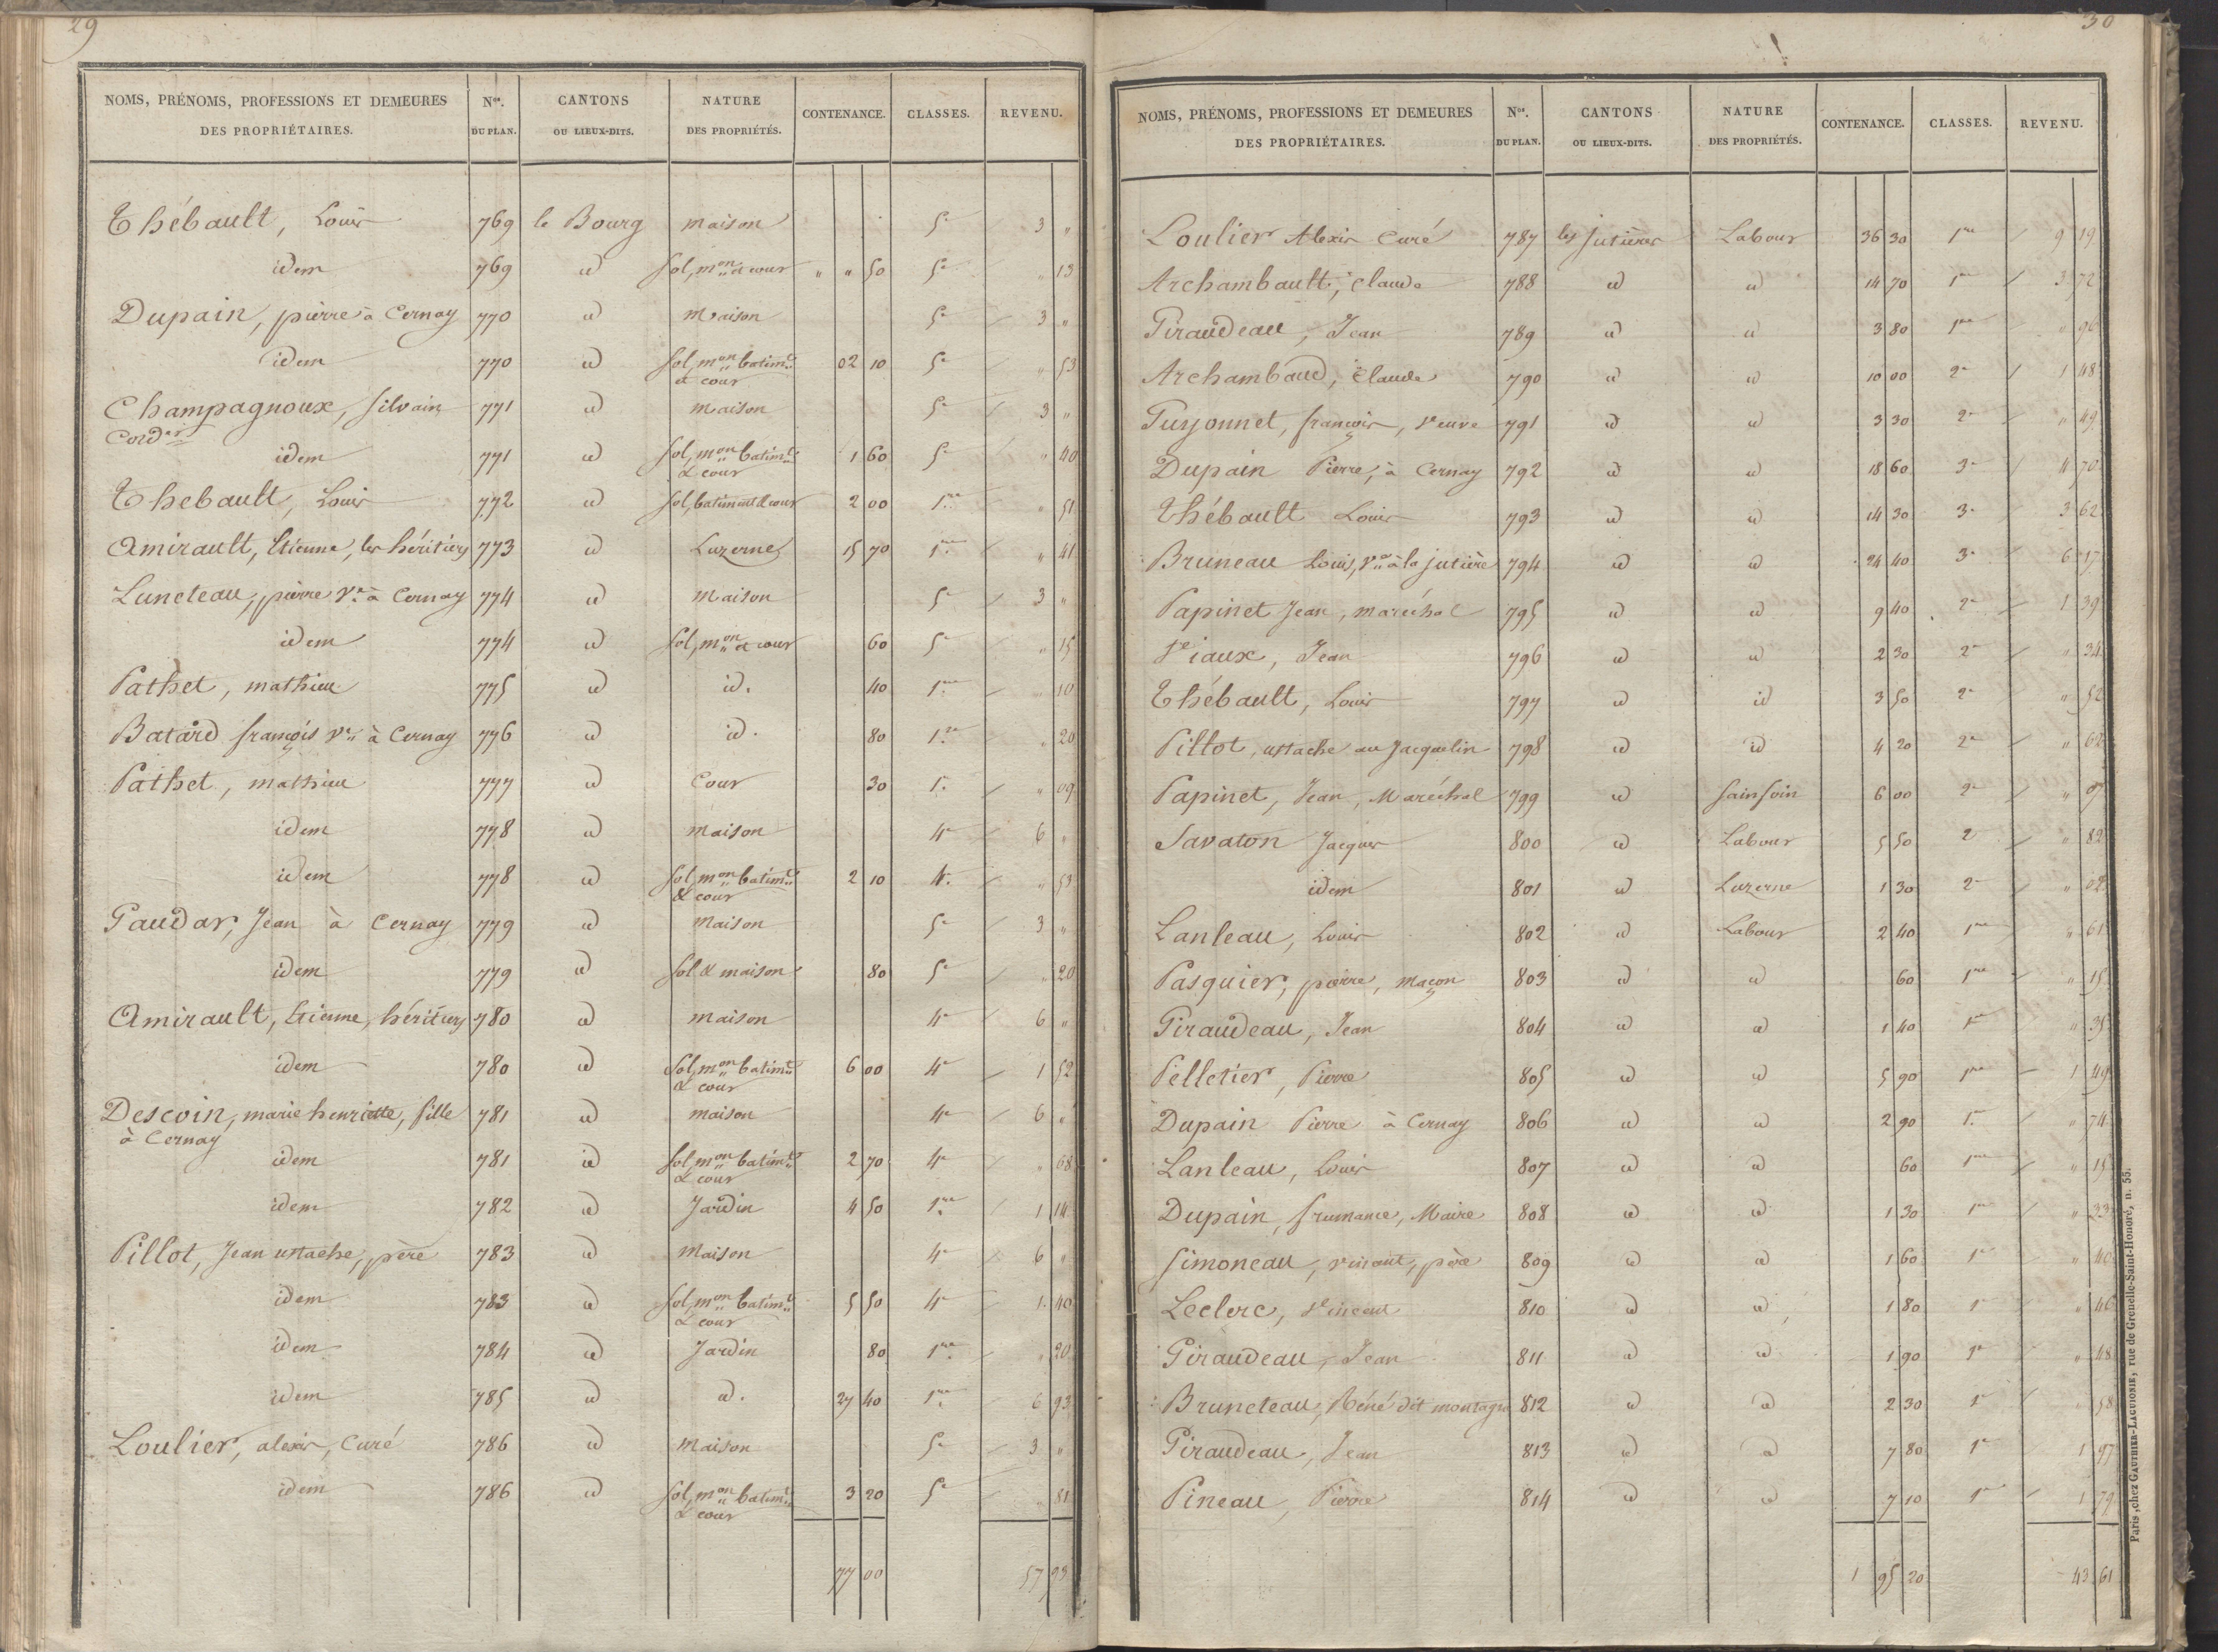 29
NOMS, PRÉNOMS, PROFESSIONS ET DEMEURES DES PROPRIÉTAIRES. Nos. DU PLAN. CANTONS OU LIEUX-DITS. NATURE DES PROPRIÉTÉS. CONTENANCE. CLASSES. REVENU.
Thébault, Louis 769 le Bourg maison 5e 3 "
idem 769 id Sol, mon et cour " " 50 5e " 13
Dupain, pierre à Cernay 770 id maison 5e 3 "
idem 770 id Sol, mon batimt et cour 02 10 5e " 53
Champagnoux, Silvain 771 id maison 5e 3 "
Cordier
idem 771 id Sol, mon batimt & cour 1 60 5e " 40
Thebault, Louis 772 id Sol, batiment & cour 2 00 1re " 51
Amirault, Etienne, les héritiers 773 id Luzerne 15 70 1re " 41
Luneteau, pierre Ve à Cernay 774 id maison 5e 3 "
idem 774 id Sol, mon et cour 60 5e " 15
Pathet, mathieu 775 id id. 40 1re " 10
Batard françois Ve à Cernay 776 id id. 80 1re " 20
Pathet, mathieu 777 id Cour 30 1e " 09
idem 778 id maison 4e 6 "
idem 778 id Sol, mon batimt & cour 2 10 4e " 53
Gaudar, Jean à Cernay 779 id maison 5e 3 "
idem 779 id Sol & maison 80 5e " 20
Amirault, Etienne, héritiers 780 id maison 4e 6 "
idem 780 id Sol, mon batimt & cour 6 00 4e 1 52
Descoin, marie henriette, fille 781 id maison 4e 6 "
à Cernay
idem 781 id Sol, mon batimt & cour 2 70 4e " 68
idem 782 id Jardin 4 50 1re 1 14
Pillot, Jean ustache, père 783 id maison 4e 6 "
idem 783 id Sol, mon batimt & cour 5 50 4e 1 40
idem 784 id Jardin 80 1re " 20
idem 785 id id. 27 40 1re 6 93
Loulier, alexis, Curé 786 id maison 5e 3 "
idem 786 id Sol, mon batimt & cour 3 20 5e " 81
77 00 57 93
30
NOMS, PRÉNOMS, PROFESSIONS ET DEMEURES DES PROPRIÉTAIRES. Nos. DU PLAN. CANTONS OU LIEUX-DITS. NATURE DES PROPRIÉTÉS. CONTENANCE. CLASSES. REVENU.
Loulier Alexis Curé 787 les Jutières Labour 36 30 1re 9 19
Archambault, Claude 788 id id 14 70 1re 3 72
Giraudeau, Jean 789 id id 3 80 1re " 96
Archambaud, Claude 790 id id 10 00 2e 1 48
Guyonnet, françois, Veuve 791 id id 3 30 2e " 49
Dupain Pierre, à Cernay 792 id id 18 60 3e 4 70
Thébault Louis 793 id id 14 30 3e 3 62
Bruneau Louis, Ve à la jutière 794 id id 24 40 3e 6 17
Papinet Jean, maréchal 795 id id 9 40 2e 1 39
Veiaux, Jean 796 id id 2 30 2e " 34
Thébault, Louis 797 id id 3 50 2e " 52
Pillot, ustache au Jacquelin 798 id id 4 20 2e " 62
Papinet, Jean, Maréchal 799 id Sainfoin 6 00 2e " 07
Savaton Jacques 800 id Labour 5 50 2 " 82
idem 801 id Luzerne 1 30 2e " 02
Lanleau, Louis 802 id Labour 2 40 1re " 61
Pasquier, pierre, maçon 803 id id 60 1re " 15
Giraudeau, Jean 804 id id 1 40 1re " 35
Pelletier, Pierre 805 id id 5 90 1re 1 49
Dupain Pierre à Cernay 806 id id 2 90 1e " 74
Lanleau, Louis 807 id id 60 1re " 15
Dupain, frumance, Maire 808 id id 1 30 1re " 33
Simoneau, vincent, père 809 id id 1 60 1e " 40
Leclerc, Vincent 810 id id 1 80 1e " 46
Giraudeau, Jean 811 id id 1 90 1e " 48
Bruneteau, Réné dit montagne 812 id id 2 30 1e " 58
Giraudeau, Jean 813 id id 7 80 1e 1 97
Pineau, Pierre 814 id id 7 10 1re 1 79
1 95 20 43 61
Paris, chez GAUTHIER-LAGUIONIE, rue de Grenelle-Saint-Honoré, n. 55.